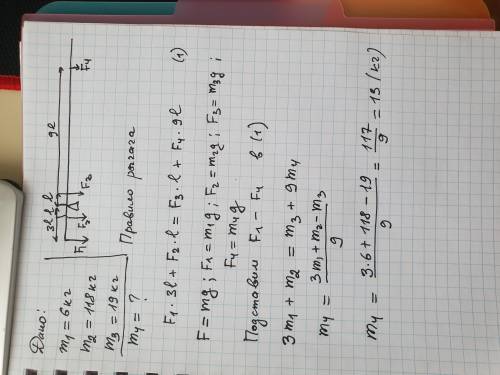 Дано:
m₁ = 6 кг
m₂ = 118 кг
m₃ = 19 кг
m₄ = ?
3l l l 9l
F₁ F₂ F₃ F₄
Правило рычага
F₁ · 3l + F₂ · l = F₃ · l + F₄ · 9l (1)
F = mg; F₁ = m₁g; F₂ = m₂g; F₃ = m₃g;
F₄ = m₄g
Подставим F₁ – F₄ в (1)
3m₁ + m₂ = m₃ + 9m₄
m₄ = (3m₁ + m₂ – m₃)/9
m₄ = (3·6 + 118 – 19)/9 = 117/9 = 13 (кг)